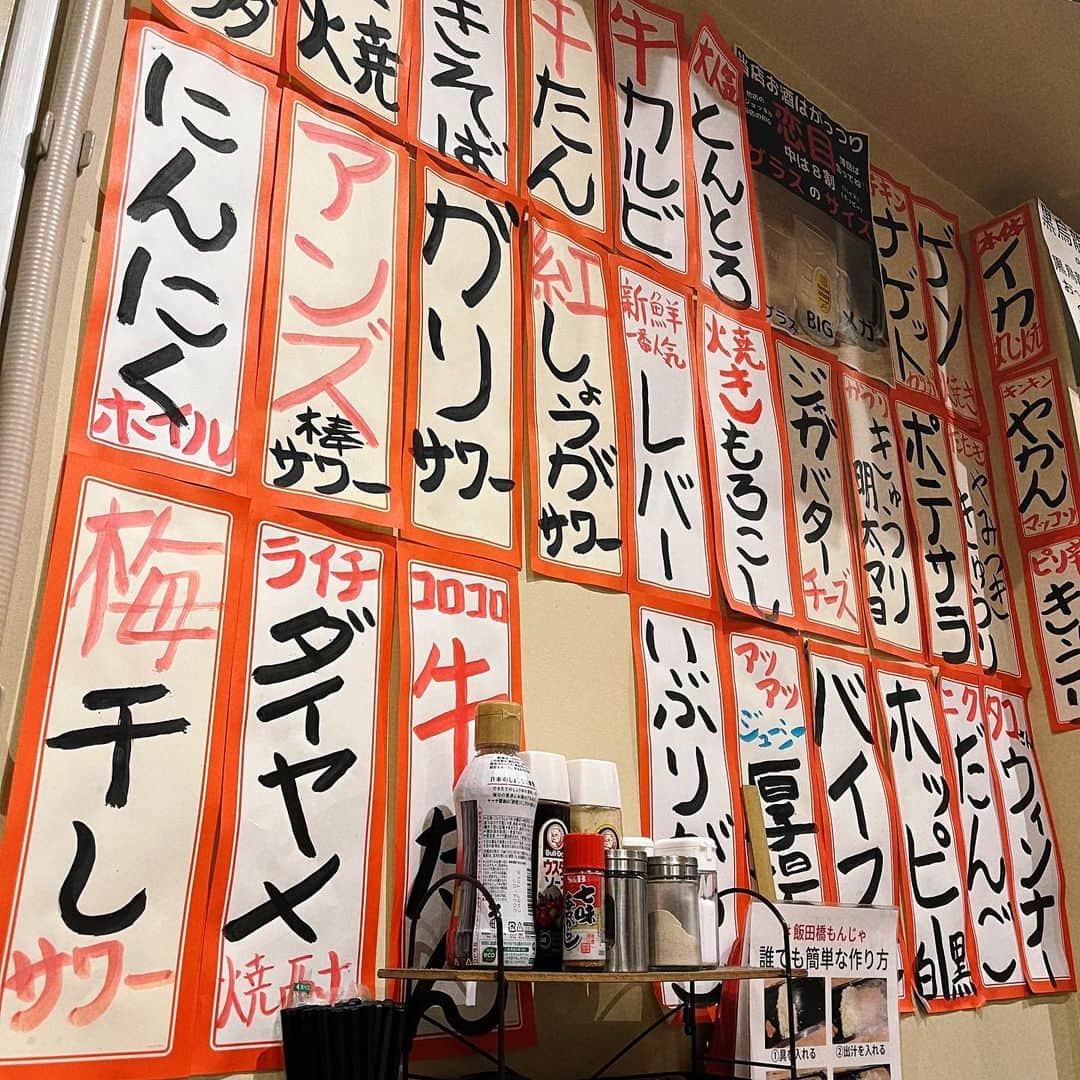 焼
きそば
牛
たん
牛
カルビ
とんとろ
当店お酒はがっつり
恋目
中は8割
グラスのサイズ
グラス
BIG
メガ
チキン
ナゲット
ゲソ
一本俗
イカ
丸し焼
にんにく
ホイル
アンズ
棒
サワー
がり
サワー
紅
しょうが
サワー
新鮮
一番人気
レバー
焼き
もろこし
ジガバター
チーズ
きゅうり
明太マヨ
ポテサラ
やみつき
きゅうり
キンキン
やかん
マッコリ
ピリ辛
梅
干し
サワー
ライチ
ダイヤメ
コロコロ
牛
たん
いぶりが
アツ
アツ
ジューシー
厚揚
バイス
ホッピー
白
黒
ニク
だんご
タコさん
ウィンナー
飯田橋もんじゃ
誰でも簡単な作り方
①具を入れる
②出汁を入れる
七味